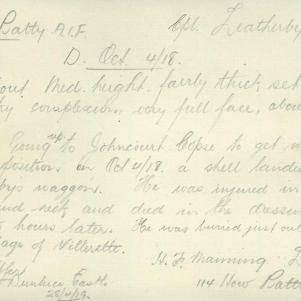 Batty A.I.F. Cpl. Leatherby
D. Oct 4/18.
Med. height. fairly thick set
complexion, very full face, abou
Going up to Joncourt Copse to get
position on Oct 4/18. a shell lande
by's waggon. He was injured in
and neck and died in the dressin
hours later. He was buried just out
age of Villerette.
H. F. Manning
114 How Batt
28/4/19.